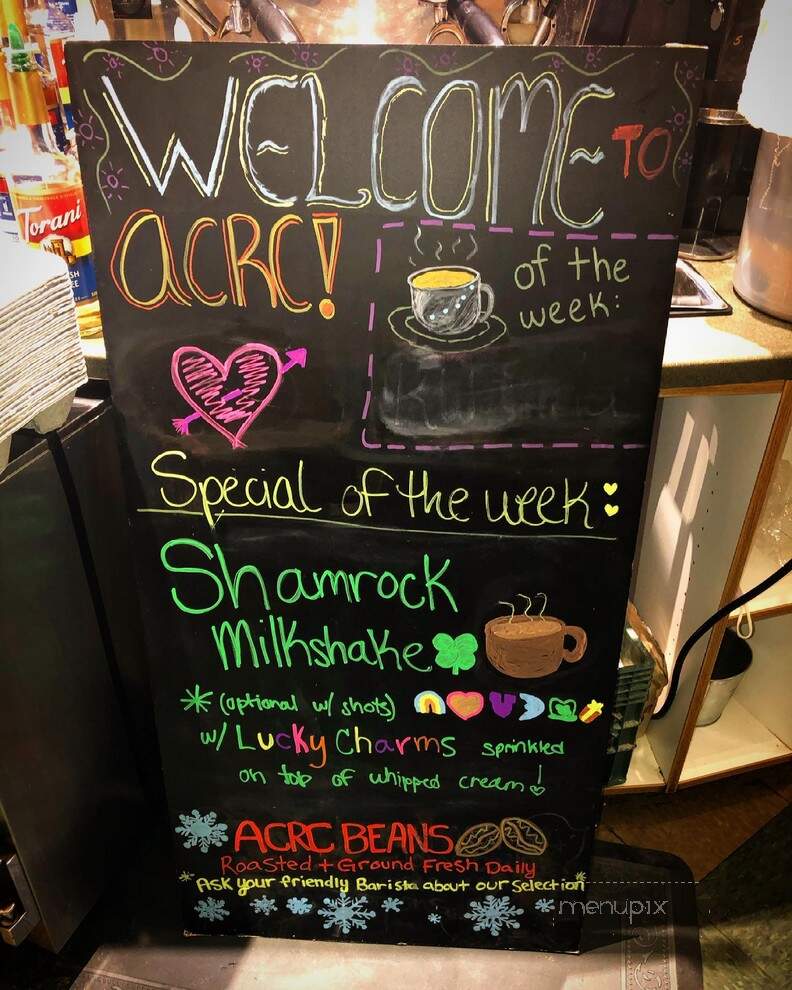 WELCOME TO
ACRC!
of the
week:
Special of the week:
Shamrock
Milkshake
* (optional w/ shots)
w/ Lucky Charms sprinkled
on top of whipped cream!
ACRC BEANS
Roasted + Ground Fresh Daily
*Ask your friendly Barista about our Selection*
Torani
menupix